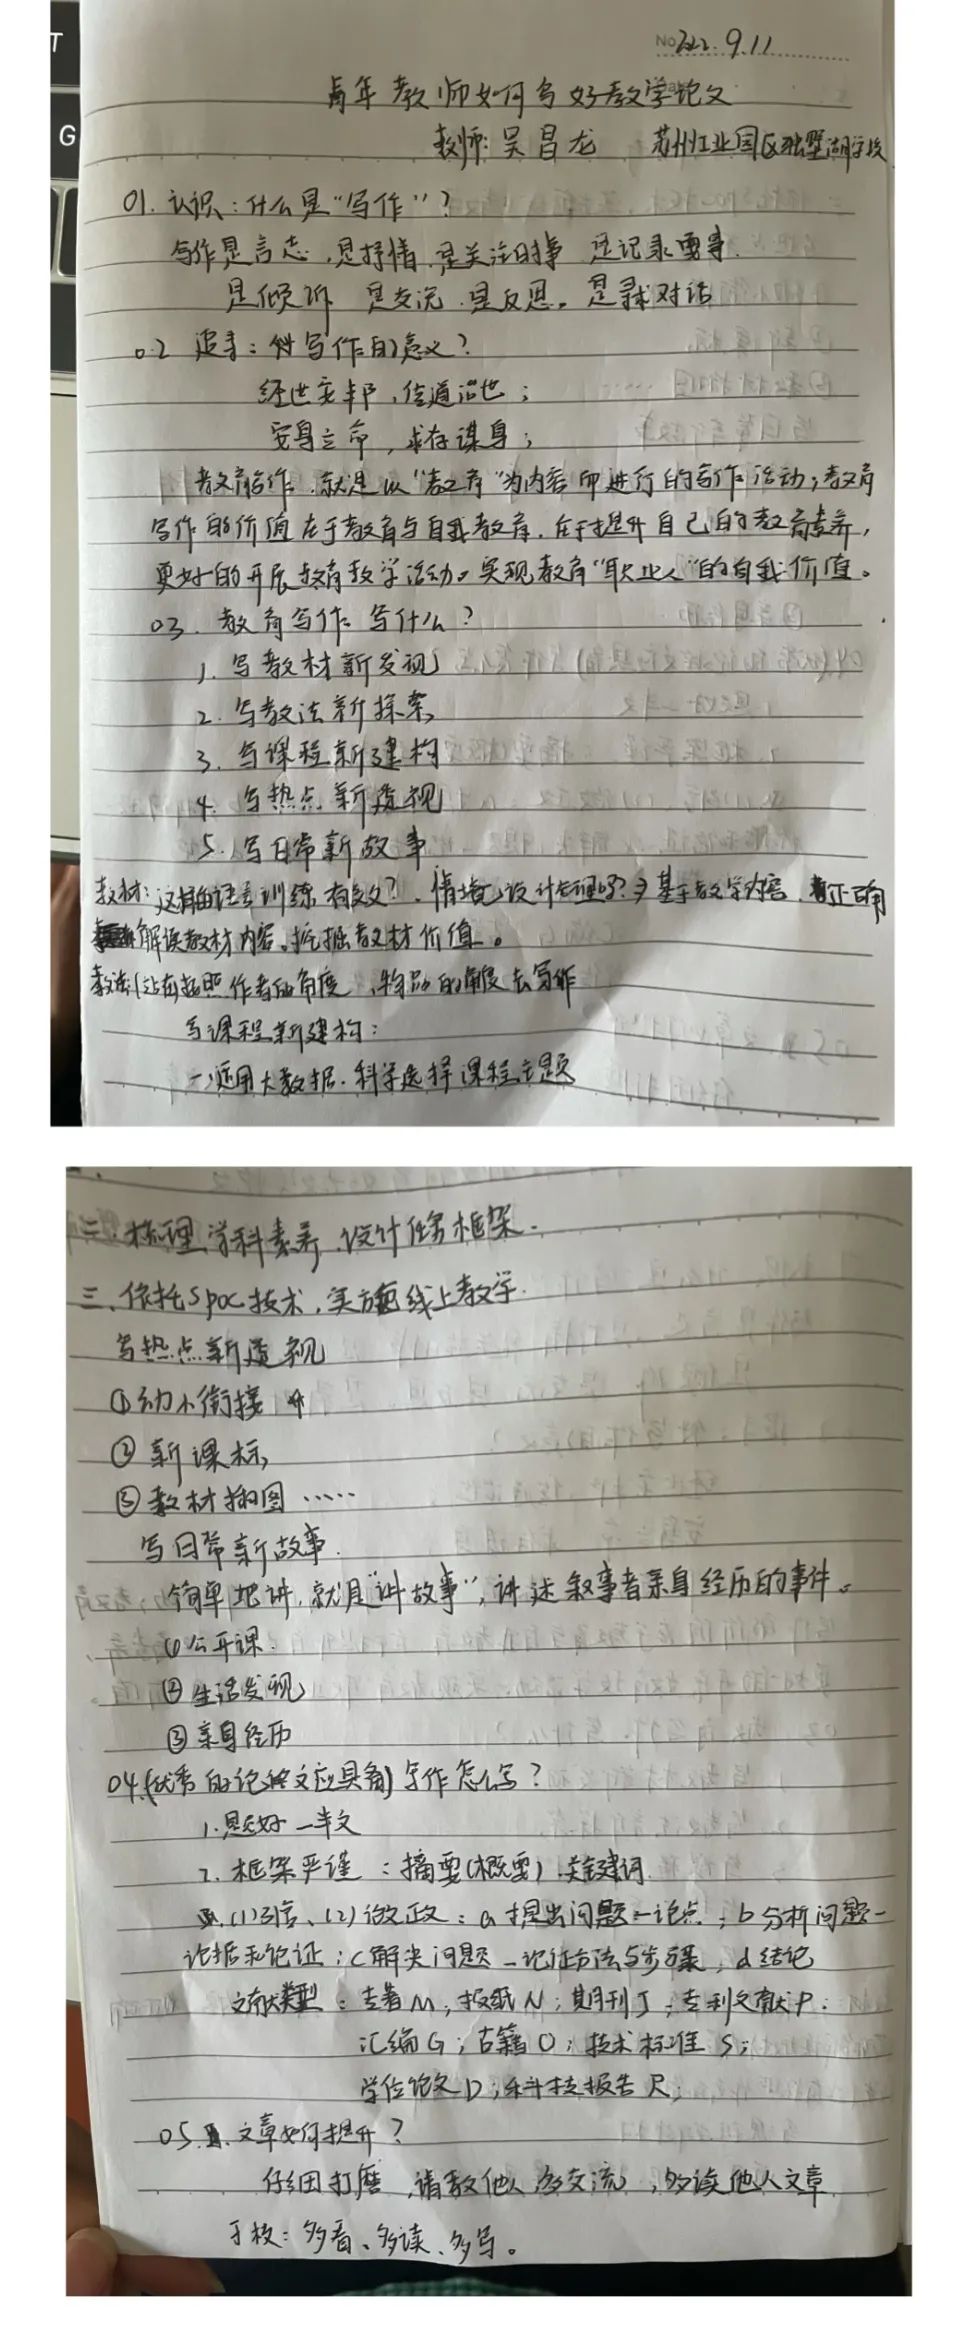 T
G
No. 2022.9.11
青年教师如何写好教学论文
教师:吴昌龙 苏州工业园区独墅湖学校
01. 认识:什么是“写作”?
写作是言志,是抒情,是关注时事 是记录要事.
是倾诉 是交流.是反思。是寻求对话
0.2 追寻:写作的意义?
经世安邦,传道治世;
安身立命,求存谋身;
教育写作.就是以“教育”为内容而进行的写作活动;教育
写作的价值在于教育与自我教育.在于提升自己的教育素养,
更好的开展教育教学活动。实现教育“职业人”的自我价值。
03. 教育写作:写什么?
1. 写教材新发现
2. 写教法新探索
3. 写课程新建构
4. 写热点新透视
5. 写日常新故事
教材:这样的语言训练有效?.情境设计合理吗?→基于教学内容.正确
解读教材内容。挖掘教材价值。
教法:站在按照作者的角度,物品的角度去写作
写课程新建构:
一、运用大数据.科学选择课程主题
二、梳理学科素养.设计任务框架.
三、依托SPOC技术,实施线上教学.
写热点新透视
①幼小衔接
②新课标
③教材插图……
写日常新故事.
简单地讲,就是“讲故事”,讲述叙事者亲身经历的事件。
①公开课.
②生活发现
③亲身经历
04.(优秀的论文应具备)写作怎么写?
1.题好一半文
2. 框架严谨:摘要(概要).关键词.
(1)引言、(2)做正政:a提出问题—论点;b分析问题—
论据和论证;c解决问题—论证方法与步骤,d结论
文献类型:专著M,报纸N;期刊J;专利文献P:
汇编G;古籍O;技术标准S;
学位论文D;科技报告R;
05. 文章如何提升?
仔细打磨,请教他人多交流,多读他人文章
于枝:多看、多读、多写。